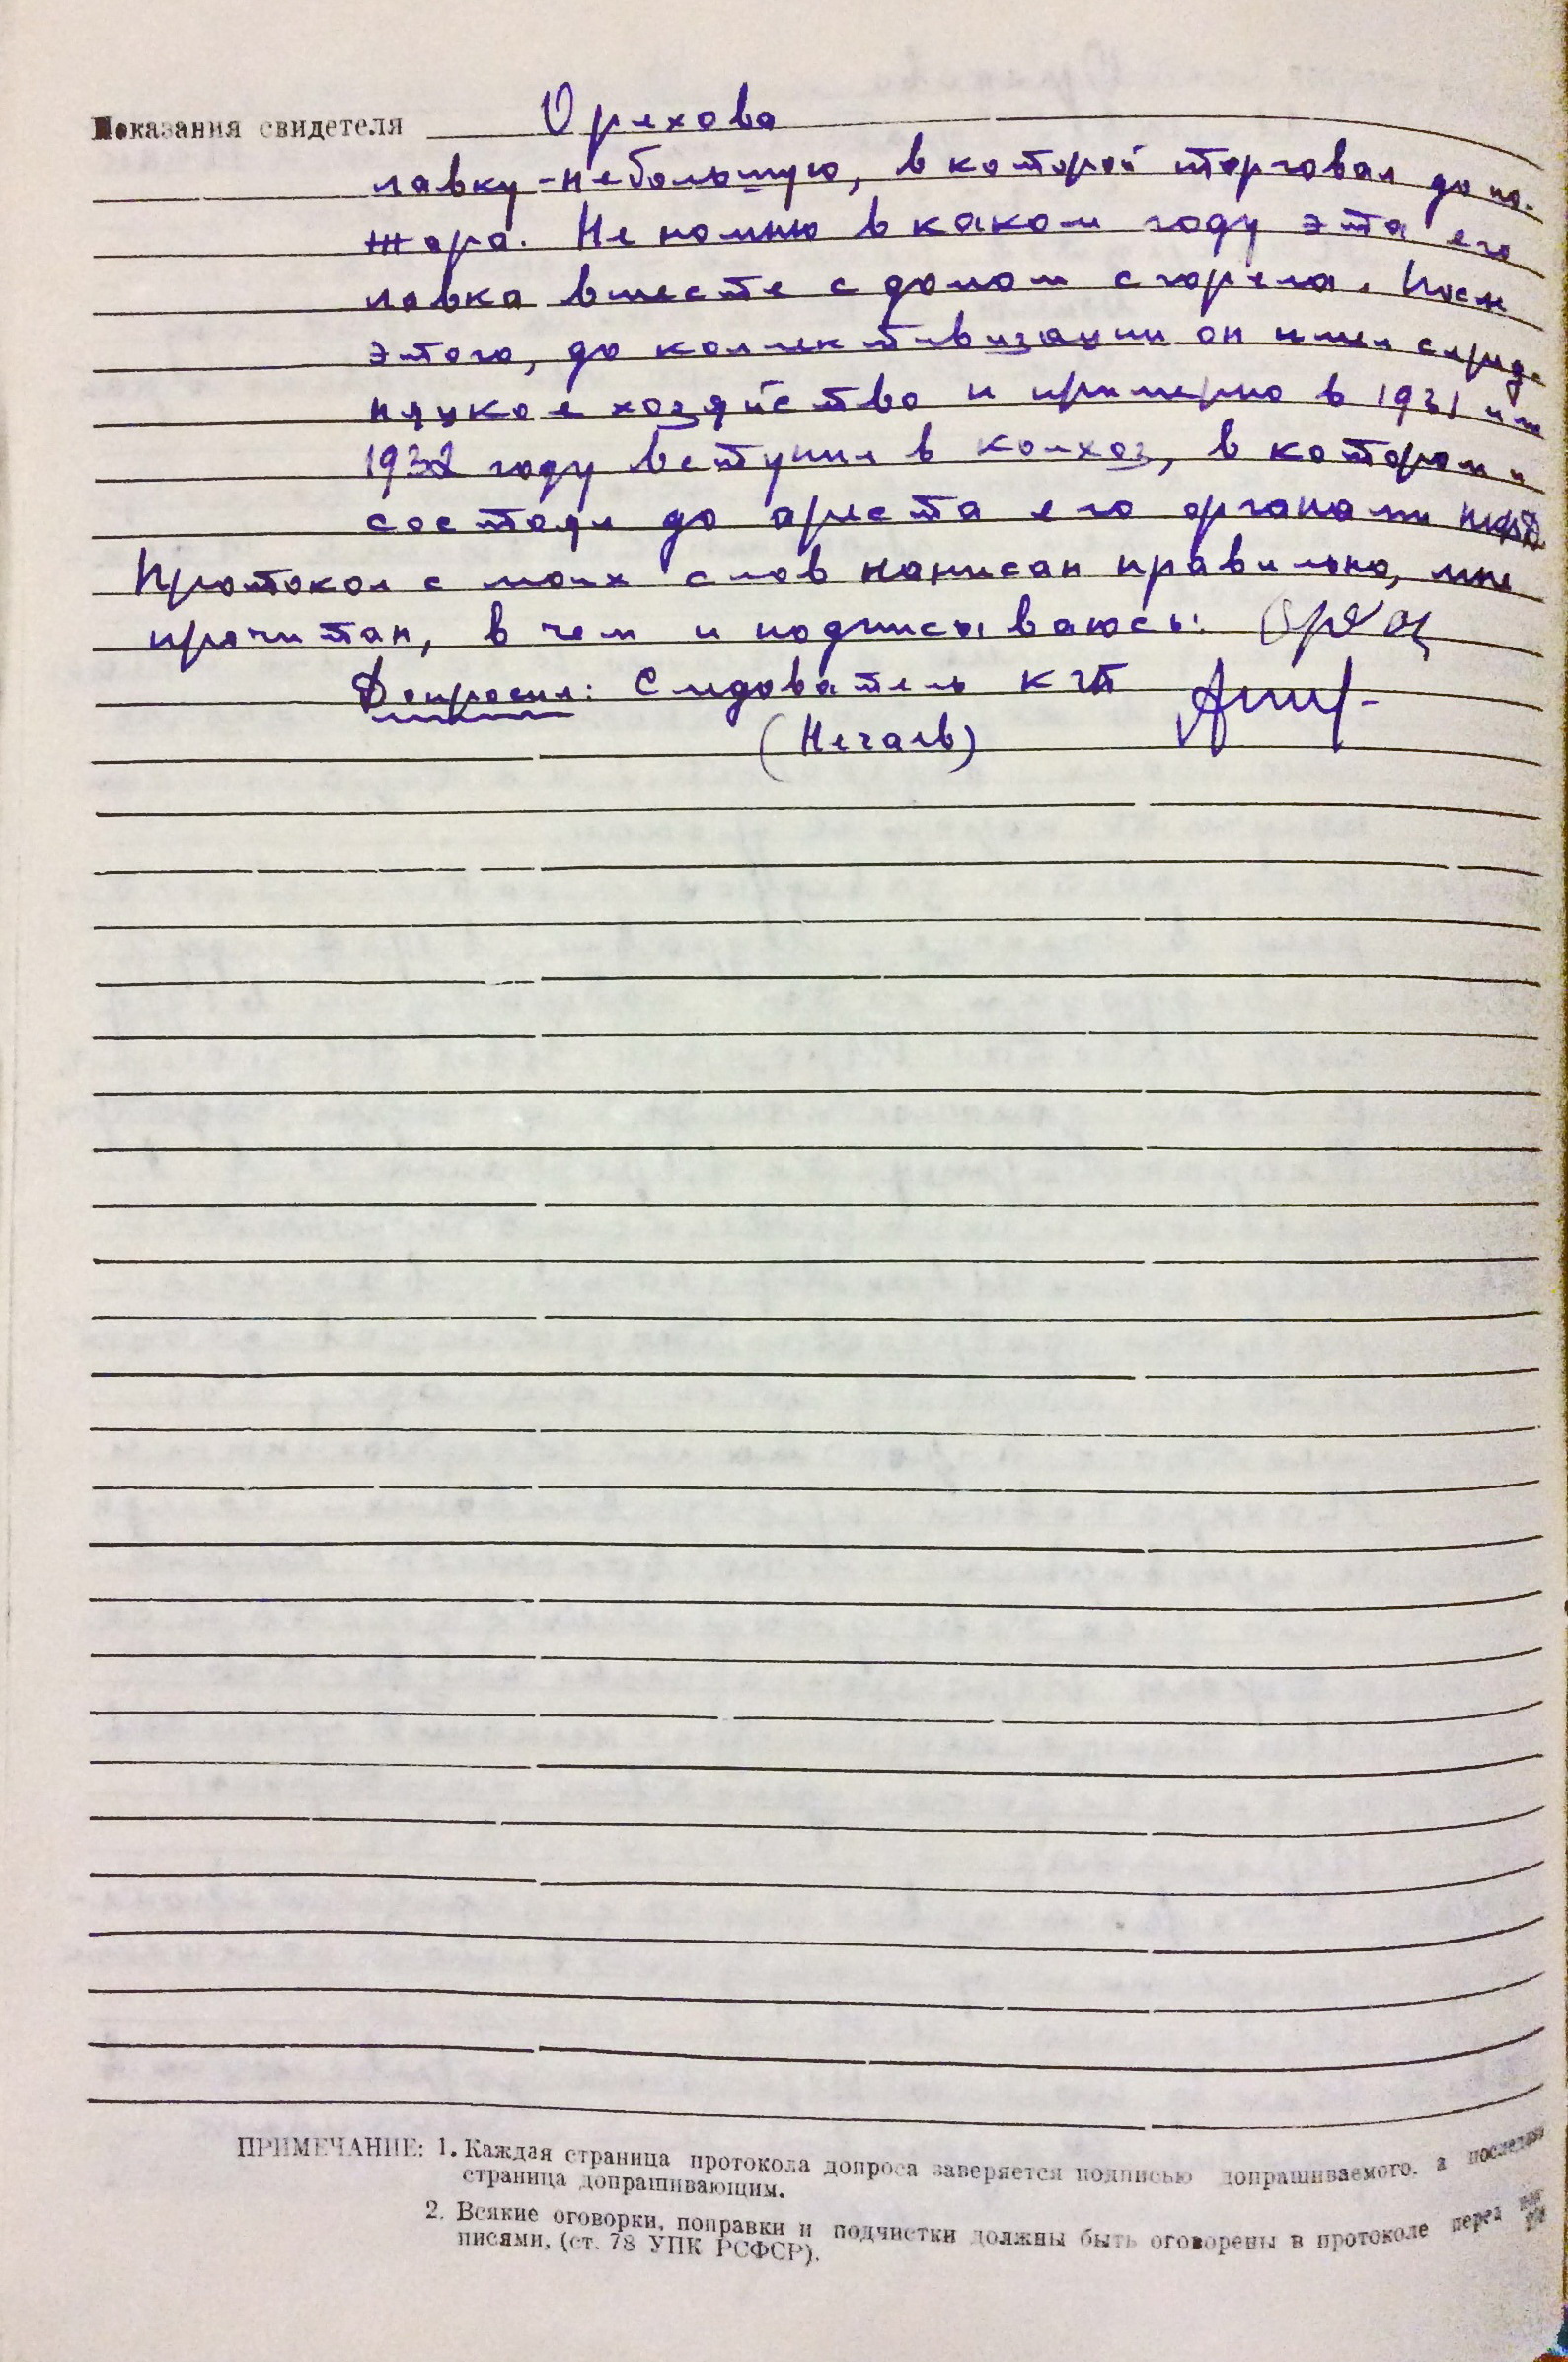 Показания свидетеля Орехова
лавку-небольшую, в которой торговал до по-
жара. Не помню в каком году эта его
лавка вместе с домом сгорела. После
этого, до коллективизации он имел серед-
няцкое хозяйство и примерно в 1931 или
1932 году вступил в колхоз, в котором и
состоял до ареста его органами НКВД
Протокол с моих слов написан правильно, мне
прочитан, в чем и подписываюсь:
Допросил: Следователь КГБ
(Нечаев)
ПРИМЕЧАНИЕ: 1. Каждая страница протокола допроса заверяется подписью допрашиваемого, а последняя
страница допрашивающим.
2. Всякие оговорки, поправки и подчистки должны быть оговорены в протоколе перед под-
писями, (ст. 78 УПК РСФСР).